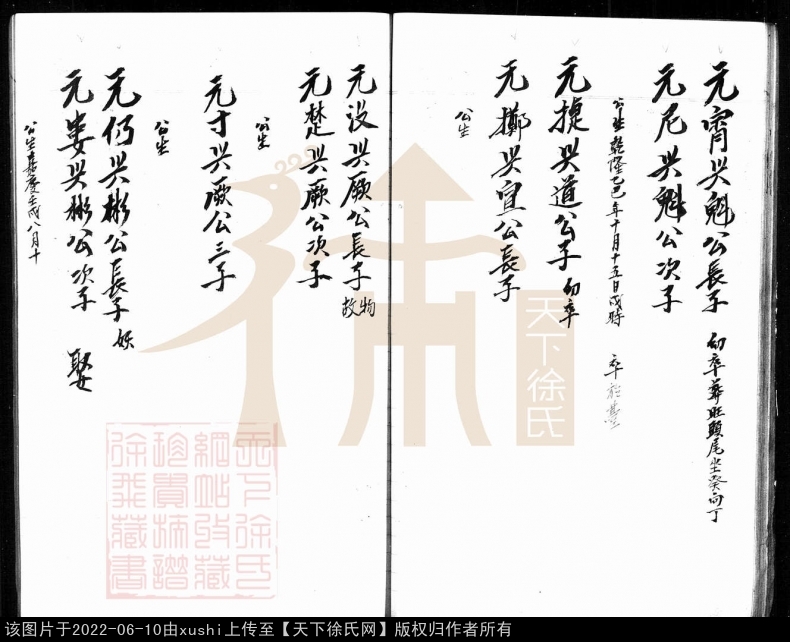 元宵兴魁公長子 幼卒葬旺頭尾坐癸向丁
元尼兴魁公次子
公生乾隆乙巳年十月十五日戌時 卒
元捷兴道公子 幼卒
元擲兴宜公長子
公生
元没兴厥公長子 物故
元楚兴厥公次子
公生
元寸兴厥公三子
公生
元仍兴彬公長子 妖
元娄兴彬公次子 娶
公生嘉慶壬戌八月十
天下徐氏
天下徐氏
網站收藏
珍貴族譜
徐飛藏書
该图片于2022-06-10由xushi上传至【天下徐氏网】版权归作者所有